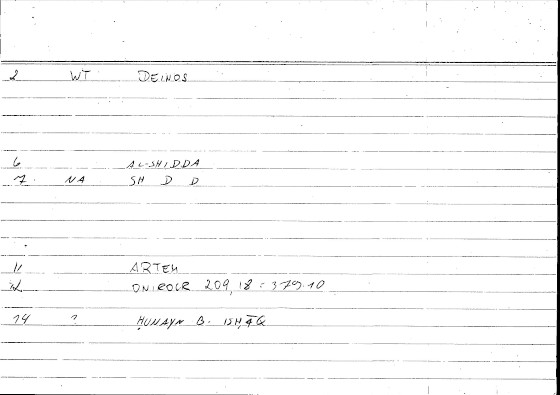 2 WT DEINOS
6 AL-SHIDDA
7 NA SH D D
11 ARTEM
12 ONIROCR 209,18 = 379.10
14 ? ḤUNAYN B. ISḤĀQ